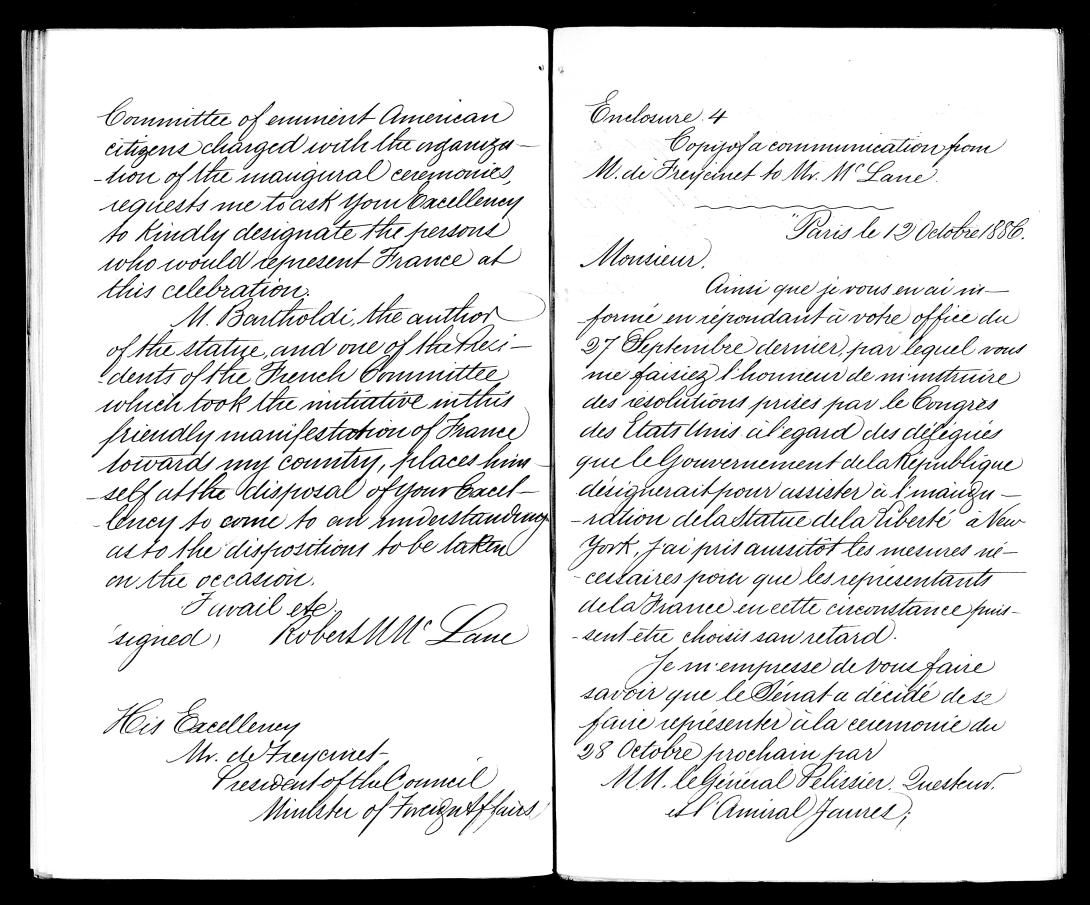 Committee of eminent American
citizens charged with the organiza-
-tion of the inaugural ceremonies,
requests me to ask Your Excellency
to kindly designate the persons
who would represent France at
this celebration.
M. Bartholdi, the author
of the statue, and one of the Presi-
-dents of the French Committee
which took the initiative in this
friendly manifestation of France
towards my country, places him-
-self at the disposal of your Excel-
-lency to come to an understanding
as to the dispositions to be taken
on the occasion.
I avail etc
signed) Robert M McLane
His Excellency
Mr. de Freycinet
President of the Council
Minister of Foreign Affairs
Enclosure 4
Copy of a communication from
M. de Freycinet to Mr. McLane.
"Paris le 12 Octobre 1886.
Monsieur.
Ainsi que je vous en ai in-
formé en répondant à votre office du
27 Septembre dernier, par lequel vous
me faisiez l'honneur de m'instruire
des résolutions prises par le Congrès
des Etats Unis à l'egard des délégués
que le Gouvernement de la République
désignerait pour assister à l'inaugu-
-ration de la Statue de la Liberté à New
York, j'ai pris aussitôt les mesures né-
-cessaires pour que les représentants
de la France en cette circonstance puis-
-sent être choisis san retard.
Je m'empresse de vous faire
savoir que le Sénat a décidé de se
faire représenter à la ceremonie du
28 Octobre prochain par
MM. le Général Pelissier, Questeur.
et l'Amiral Jaures;